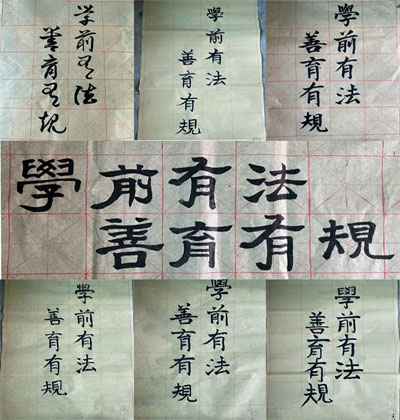 学前有法
善育有规
學前有法
善育有規
學前有法
善育有規
學前有法
善育有規
學前有法
善育有規
學前有法
善育有規
學前有法
善育有規